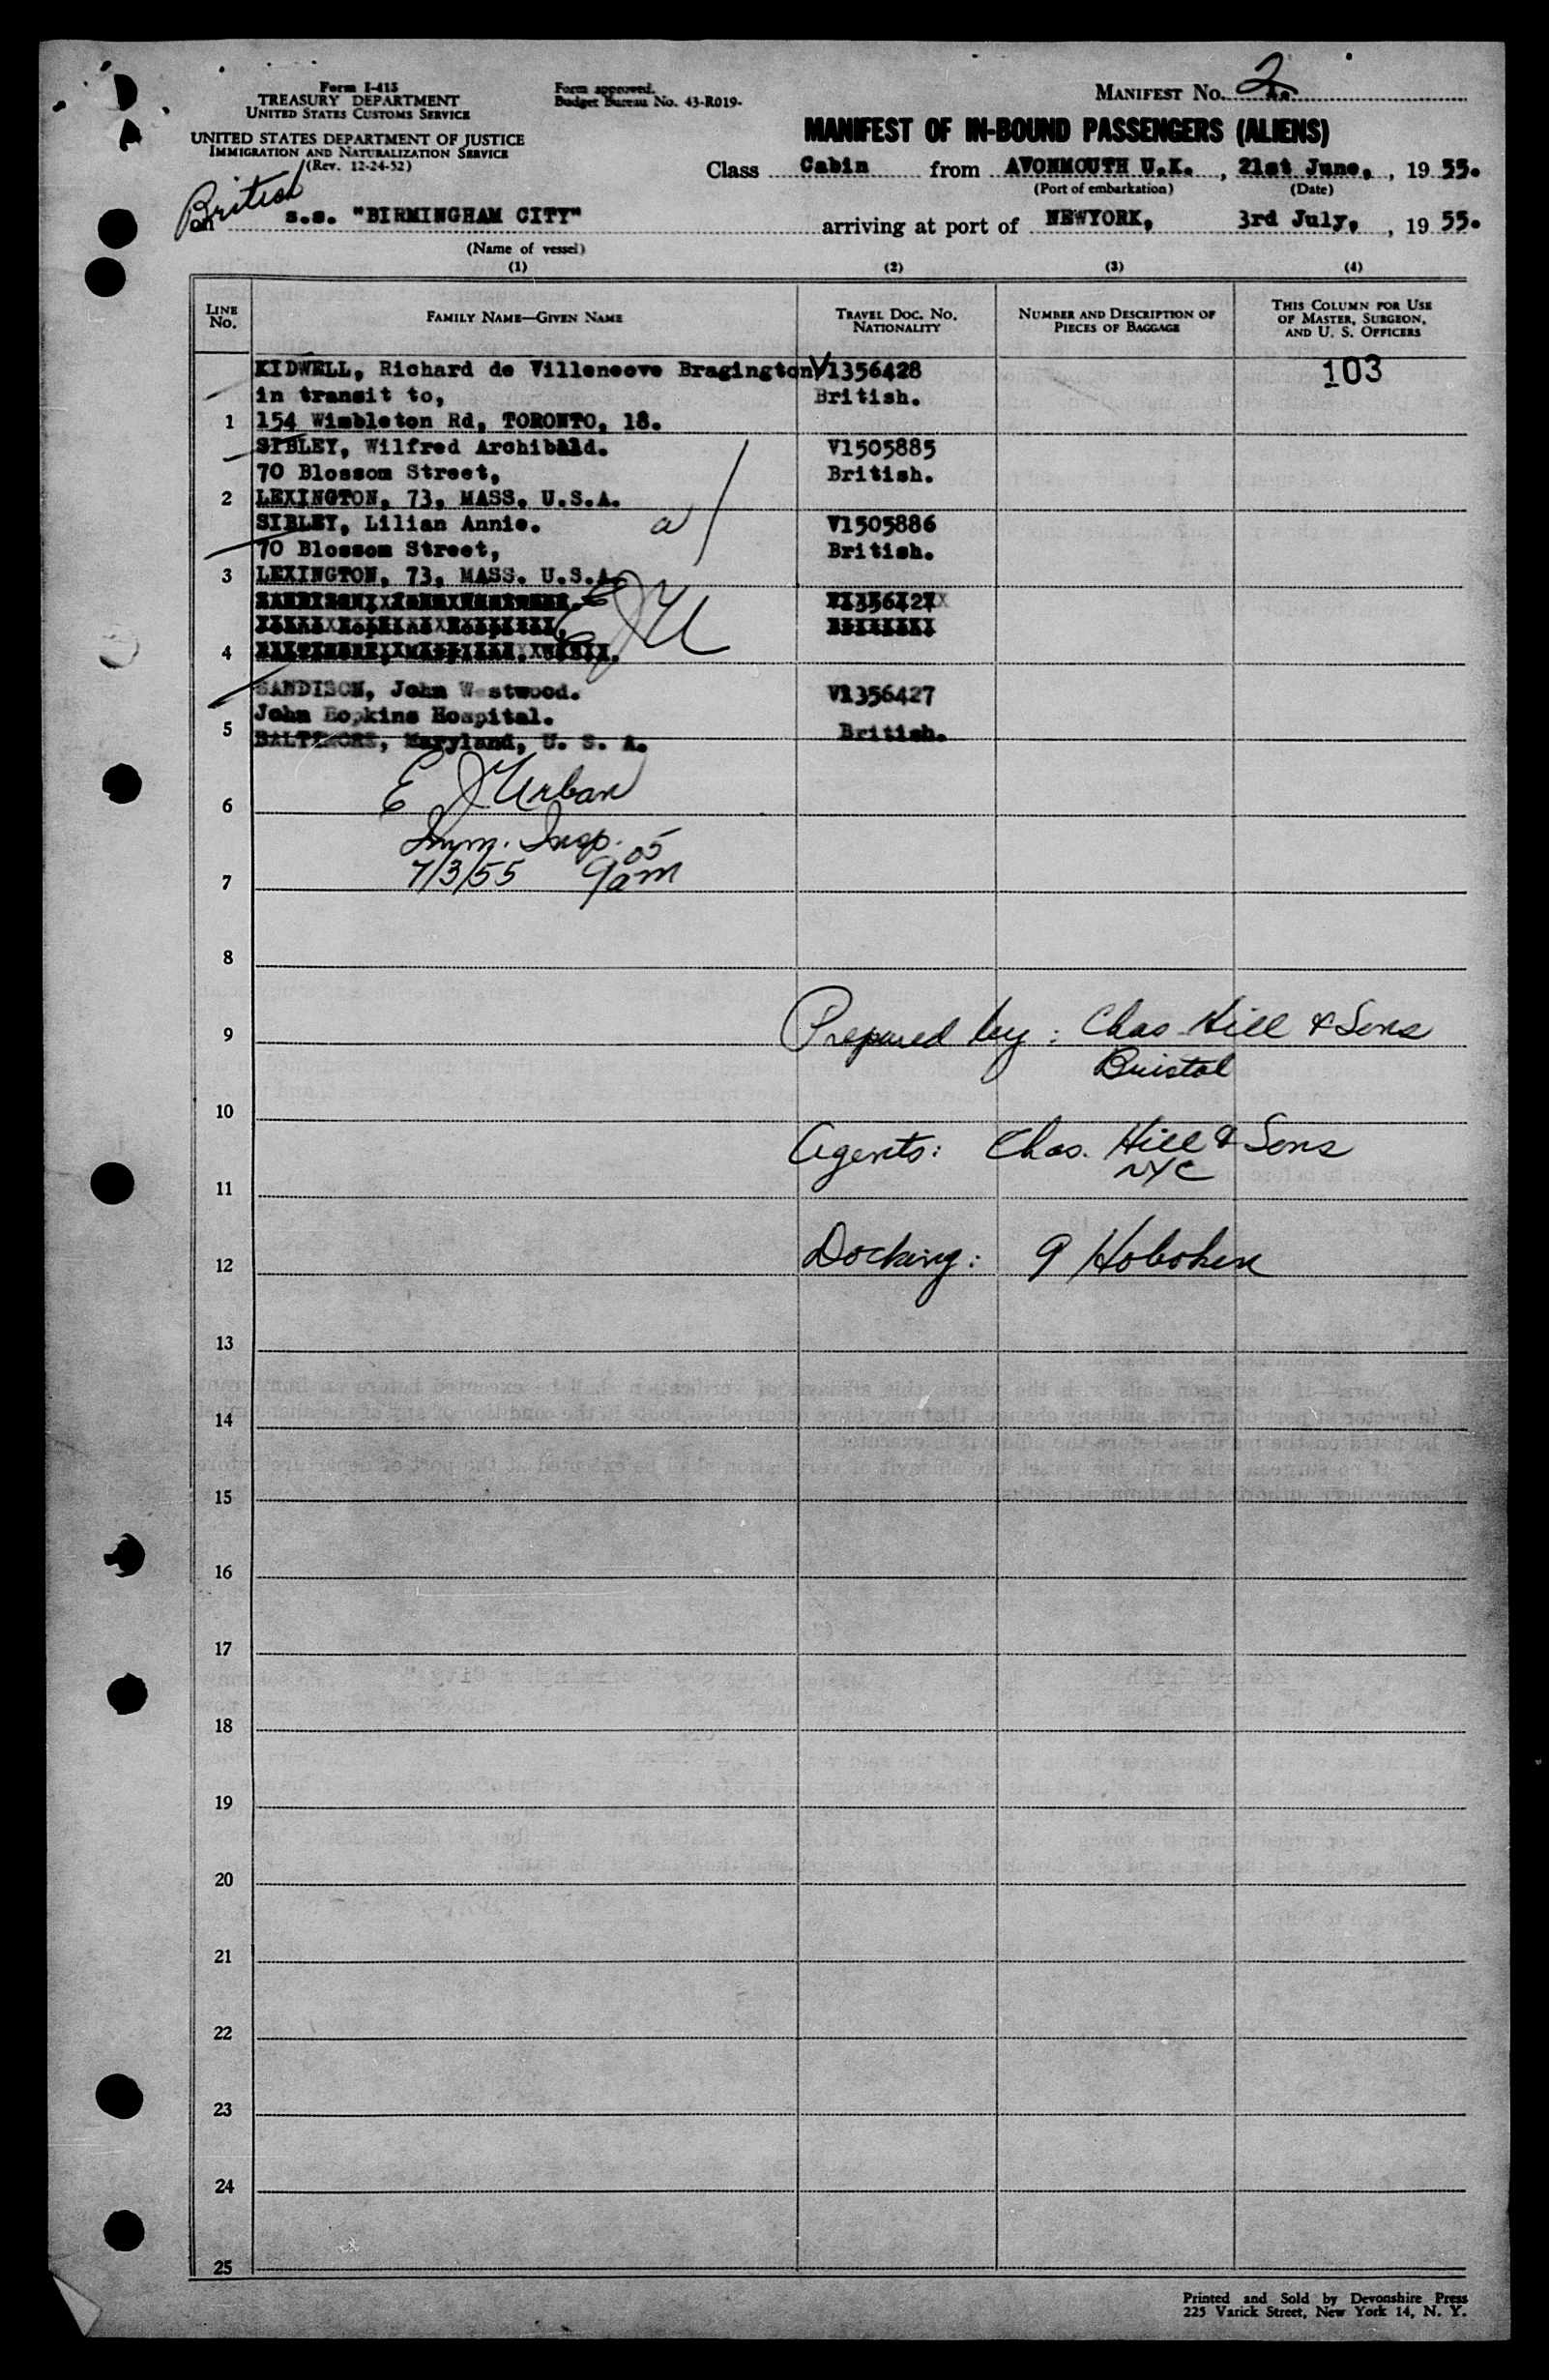 Form I-415
TREASURY DEPARTMENT
UNITED STATES CUSTOMS SERVICE
UNITED STATES DEPARTMENT OF JUSTICE
IMMIGRATION AND NATURALIZATION SERVICE
(Rev. 12-24-52)
Form approved.
Budget Bureau No. 43-R019-
MANIFEST NO. 2
MANIFEST OF IN-BOUND PASSENGERS (ALIENS)
Class Cabin from AVONMOUTH U.K. , 21st June, , 19 55.
(Port of embarkation) (Date)
British
on s.s. "BIRMINGHAM CITY" arriving at port of NEWYORK, 3rd July, , 19 55.
(Name of vessel)
(1) (2) (3) (4)
LINE NO. FAMILY NAME—GIVEN NAME TRAVEL DOC. NO. NATIONALITY NUMBER AND DESCRIPTION OF PIECES OF BAGGAGE THIS COLUMN FOR USE OF MASTER, SURGEON, AND U. S. OFFICERS
KIDWELL, Richard de Villeneove Bragington V1356428 103
in transit to, British.
1 154 Wimbleton Rd, TORONTO, 18.
SIBLEY, Wilfred Archibald. V1505885
70 Blossom Street, British.
2 LEXINGTON, 73, MASS. U.S.A.
SIBLEY, Lilian Annie. a V1505886
70 Blossom Street, British.
3 LEXINGTON, 73, MASS. U.S.A.
EJU
4
SANDISON, John Westwood. V1356427
John Hopkins Hospital.
5 BALTIMORE, Maryland, U. S. A. British.
E J Urban
6
Imm. Insp.
7/3/55 9 05 am
7
8
9 Prepared by: Chas Hill & Sons
Bristol
10
Agents: Chas. Hill & Sons
NYC
11
12 Docking: 9 Hoboken
13
14
15
16
17
18
19
20
21
22
23
24
25
Printed and Sold by Devonshire Press
225 Varick Street, New York 14, N. Y.